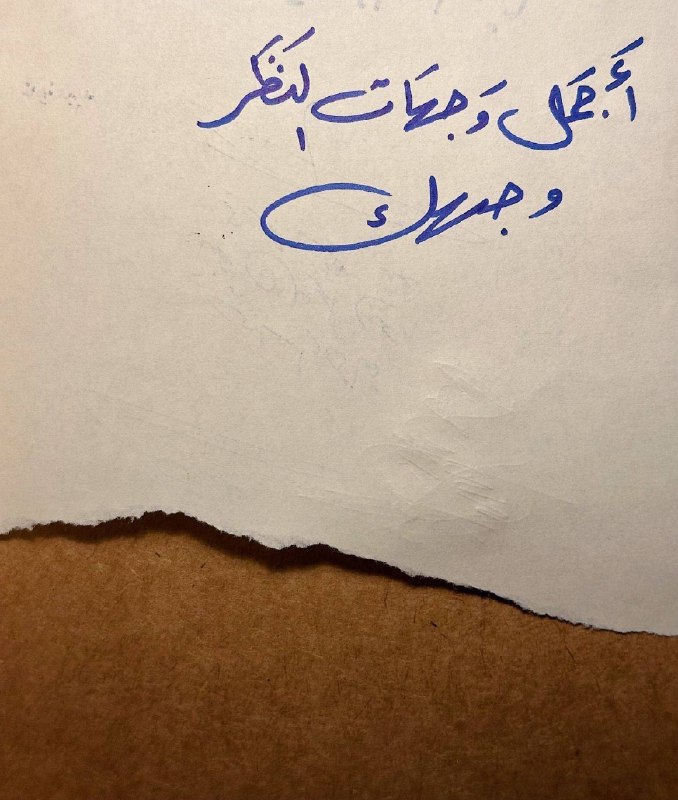 أَجمَل وَجهَات النَظَر
وجهك